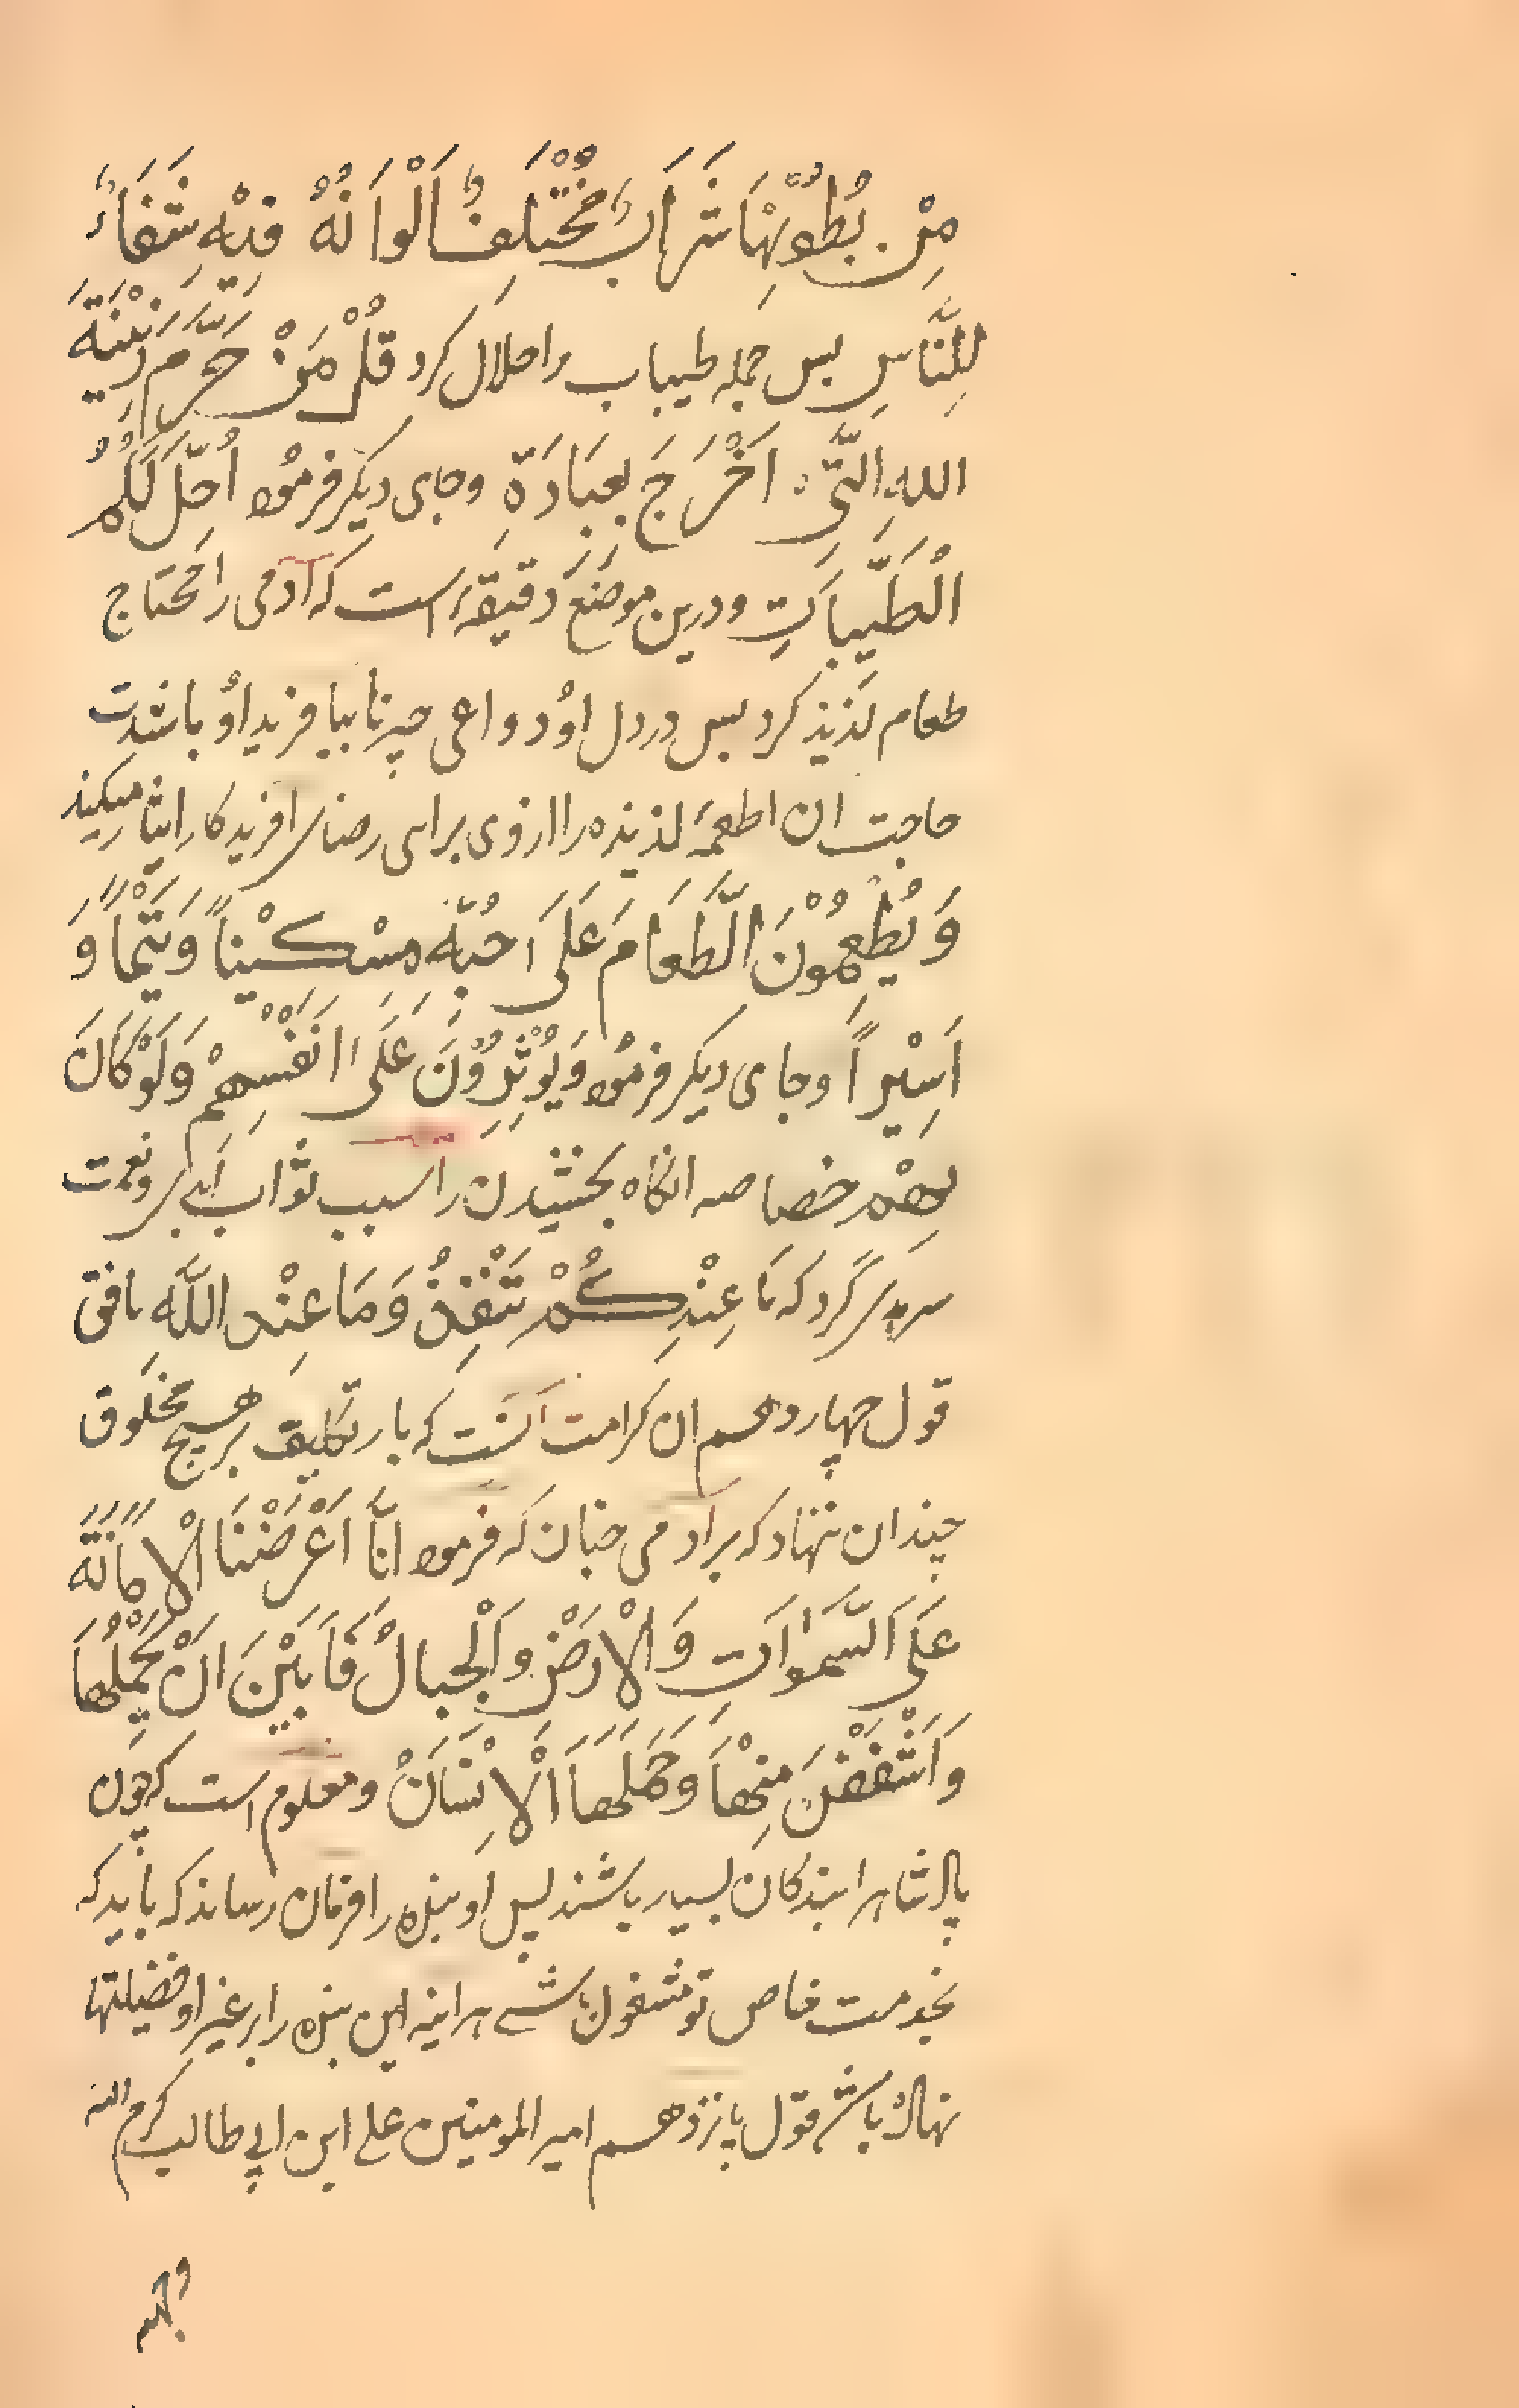 مِنْ بُطُوْنِهَا شَرَابٌ مُخْتَلِفٌ اَلْوَانُهُ فِيْهِ شِفَاءٌ
لِلنَّاسِ بس جمله طیبات را حلال کرد قُلْ مَنْ حَرَّمَ زِيْنَةَ
اللهِ الَّتِیْ اَخْرَجَ بِعِبَادَةٍ وجای دیکر فرمود اُحِلَّ لَكُمْ
الْطَّيِّبَاتِ ودرین موضع دقیقهٔ است که آدمی را محتاج
طعام لذیذ کرد بس در دل او دواعی بیافرید او باشدت
حاجت ان اطعمهٔ لذیذه را ارزوی برای رضای افریدکار ایثار میکند
وَ يُطْعِمُوْنَ الَّطَعَامَ عَلٰى حُبِّهٖ مِسْكِيْناً وَ يَتْيِماً وَ
اَسِيْراً وجای دیکر فرمود وَيُوْثِرُوْنَ عَلٰى اَنْفُسِهِمْ وَلَوْ كَانَ
بِهِمْ خصاصه انکاه بخشیدن را سبب ثواب ابدی ونعمت
سرمدی کرد که مَا عِنْدِكُمْ تَنْفِذُ وَمَا عِنْدِ اللّٰهِ باقی
قول چهاردهم ان کرامت انست که بار تکلیف بر هیچ مخلوق
چندان ننهاد که بر آدمی چنان که فرمود انَّا اَعْرَضْنَا الْاَمَانَةً
عَلَى السَّمٰوَاتِ وَالْاَرْضِ وَالْجِبالُ فَاَبَيْنَ انْ يَحْمِلْهَا
وَاَشْفَقْنَ مِنْهَا وَحَمَلَهَا اَلْاِنْسَانْ ومعلوم است که چون
پادشاه را بندکان بسیار باشند پس او بنده را فرمان رساند که باید که
بخدمت خاص تو مشغول باشے هراینه این بنده را بر غیر او فضیلتها
نهاده باشد قول پانزدهم امیر المومنین علے ابن ابی طالب کرم الله
وجهه